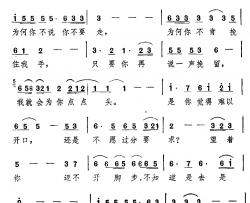 i 5 5 5 5· 6 3 3 3 — — — 6 3 3 3 3 3 5
为何你不说你不要 走, 为何你不肯挽
6 6 5 — — — 3· 2 1· 2 3 5 5 5 3 5
住我手。 只要你再 说一声挽留,
6 5 6 3 2 1 5 3 5 3 2 — — — 1· 7 6 1
我就会为你点点 头。 是你觉得难以
6 5 5 — 5 3 6· 5 5· 5 3 2 1 2 — — 3 2 1
开口, 还是 不愿过分要 求? 望着
5 — — 3 7 6· 7 6 5 6 5 6 7
你 迟不 开脚步,不知道是去是